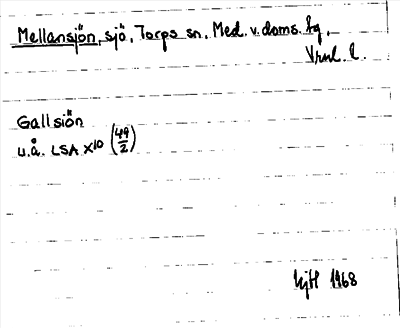 Mellansjön, sjö, Torps sn, Med. v. doms. tg,
Vrnl. l.
Gallsiön
u.å. LSA X10 (49/2)
1968